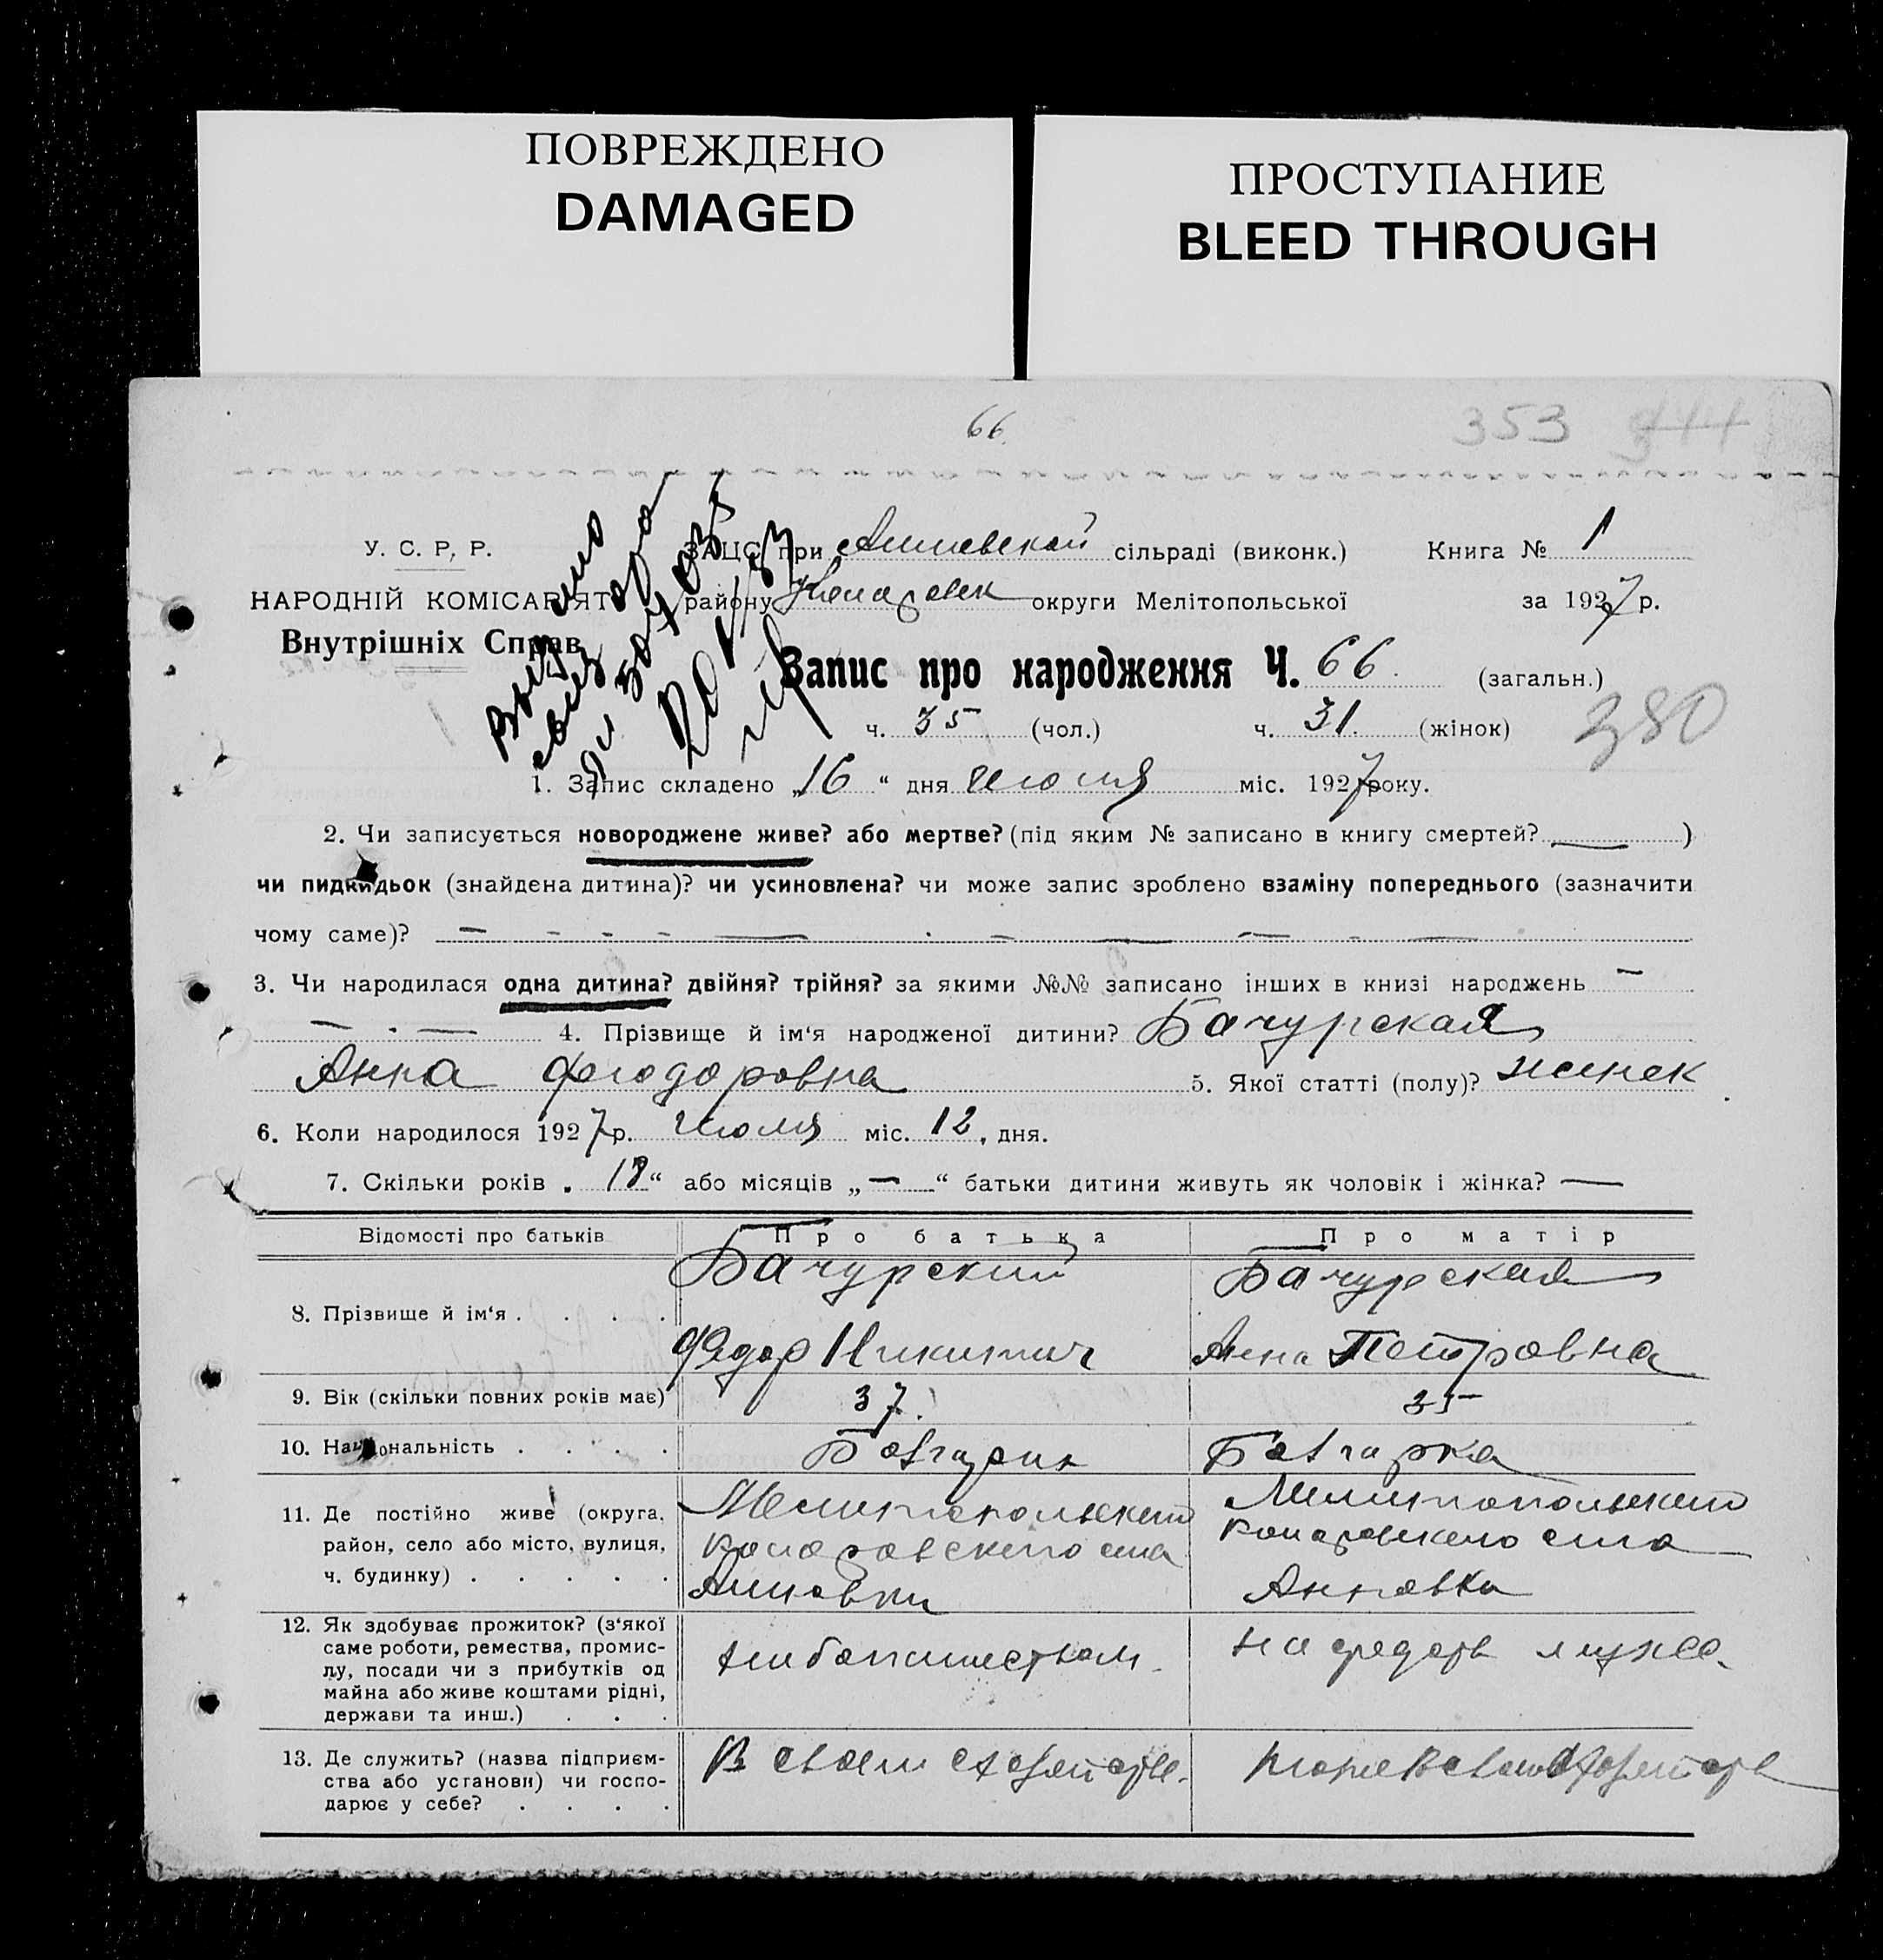 ПОВРЕЖДЕНО
DAMAGED
ПРОСТУПАНИЕ
BLEED THROUGH
66.
353
У. С. Р. Р.
ЗАЦС при сільраді (виконк.) Книга № 1
НАРОДНІЙ КОМІСАРІЯТ району округи Мелітопольської за 1927 р.
Внутрішніх Справ
Запис про народження Ч. 66. (загальн.)
ч. 35 (чол.) ч. 31. (жінок)
380
1. Запис складено „16“ дня Июля міс. 1927 року.
2. Чи записується новороджене живе? або мертве? (під яким № записано в книгу смертей? — )
чи пидкидьок (знайдена дитина)? чи усиновлена? чи може запис зроблено взаміну попереднього (зазначити
чому саме)? —
3. Чи народилася одна дитина? двійня? трійня? за якими №№ записано інших в книзі народжень —
— 4. Прізвище й ім‘я народженої дитини? Бачурская
Анна Феодоровна 5. Якої статті (полу)? женск
6. Коли народилося 1927 р. Июля міс. 12, дня.
7. Скільки років „18“ або місяців „—“ батьки дитини живуть як чоловік і жінка? —
Відомості про батьків Про батька Про матір
8. Прізвище й ім‘я . . . . Бачурский Бачурская
Федор Никитич Анна Петровна
9. Вік (скільки повних років має) 37. 35
10. Національність . . . . Болгарин Болгарка
11. Де постійно живе (округа, Мелитопольского Мелитопольского
район, село або місто, вулиця, села села
ч. будинку) . . . . . Анновки Анновка
12. Як здобуває прожиток? (з‘якої
саме роботи, ремества, промис-
лу, посади чи з прибутків од хлебопашеством. на средств мужа.
майна або живе коштами рідні,
держави та инш.) . . .
13. Де служить? (назва підприєм- В своем хозяйстве.
ства або установи) чи госпо-
дарює у себе? . . . .